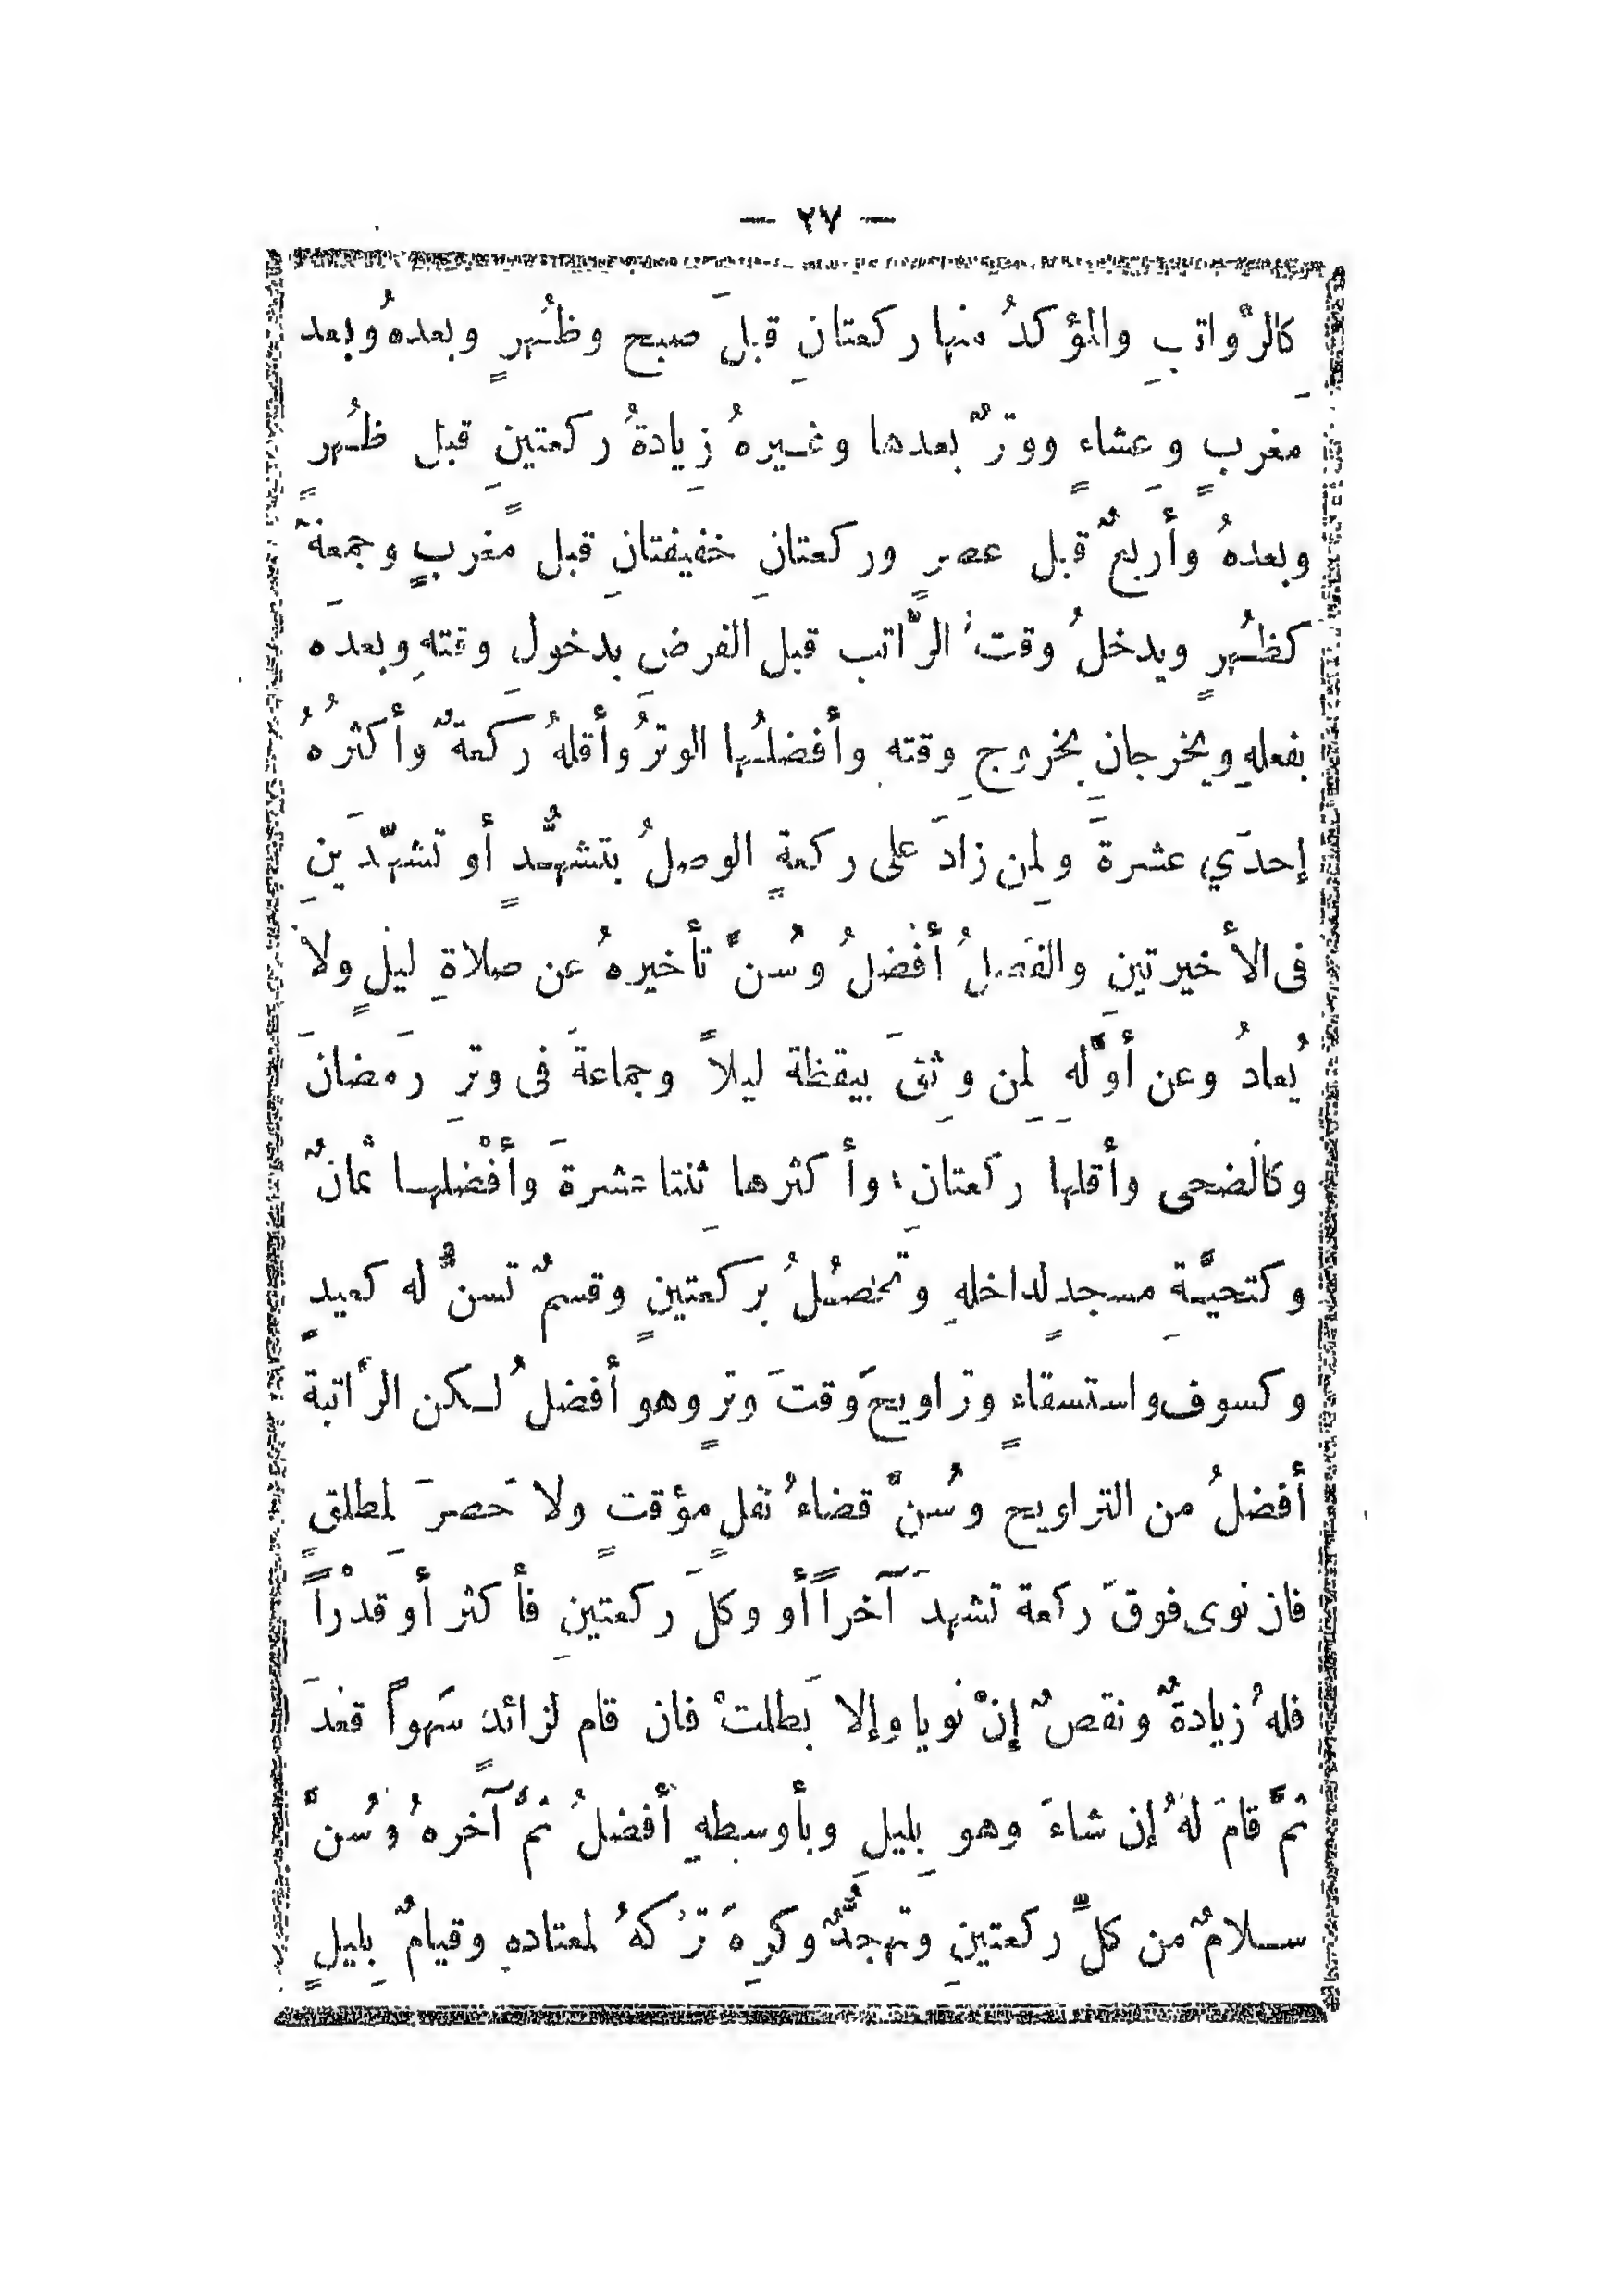 — ٢٧ —
كالرَّواتبِ والمؤكدُ منها ركعتانِ قبلَ صبحٍ وظُهرٍ وبعدهُ وبعد
مغربٍ وعِشاءٍ ووترٌ بعدها وغيرهُ زِيادةُ ركعتينِ قبل ظُهرٍ
وبعدهُ وأربعٌ قبل عصرٍ وركعتانِ خفيفتانِ قبل مغربٍ وجمعةٌ
كظُهرٍ ويدخلُ وقتُ الرَّاتب قبل الفرضِ بدخولِ وقتهِ وبعدَه
بفعلهِ ويخرجانِ بخروجِ وقته وأفضلُها الوترُ وأقلهُ رَكعةٌ وأكثرُهُ
إحدَي عشرةَ ولِمن زادَ على ركعةٍ الوصلُ بتشهُّدٍ أو تشهّدَينِ
فى الأخيرتينِ والفَصلُ أفْضلُ وسُنَّ تأخيرهُ عن صلاةِ ليلٍ ولا
يُعادُ وعن أوَّلهِ لِمن وثِقَ بيقظَة ليلاً وجماعةَ فى وترِ رَمضانَ
وكالضحى وأقلها ركعتانِ وأكثرها ثِنتا عشرةَ وأفْضلها ثمانٌ
وكتحيَّةِ مسجدٍ لداخلهِ وتحصُلُ بركعتينِ وقسمٌ تسنُّ له كعيدٍ
وكسوف واستسقاءٍ وتراويحَ وقتَ وترٍ وهو أفضلُ لكن الرَّاتبة
أفضلُ من التراويح وسُنَّ قضاءُ نفلٍ مؤقتٍ ولا حَصرَ لِمطلقٍ
فان نوى فوقَ ركعة تشهدَ آخراً أو وكلَ ركعتينِ فأكثر أو قدْراً
فلهُ زيادةٌ ونقصٌ إنْ نويا وإلا بَطلتْ فان قام لزائدٍ سَهواً قعدَ
ثمَّ قامَ لهُ إن شاءَ وهو بِليلِ وبأوسطهِ أفضلُ ثمَّ آخرهُ وسُنَّ
سلامٌ من كلِّ ركعتينِ وتهجُّدٌ وكرِهَ ترْكهُ لمعتادهِ وقيامٌ بِليلٍ